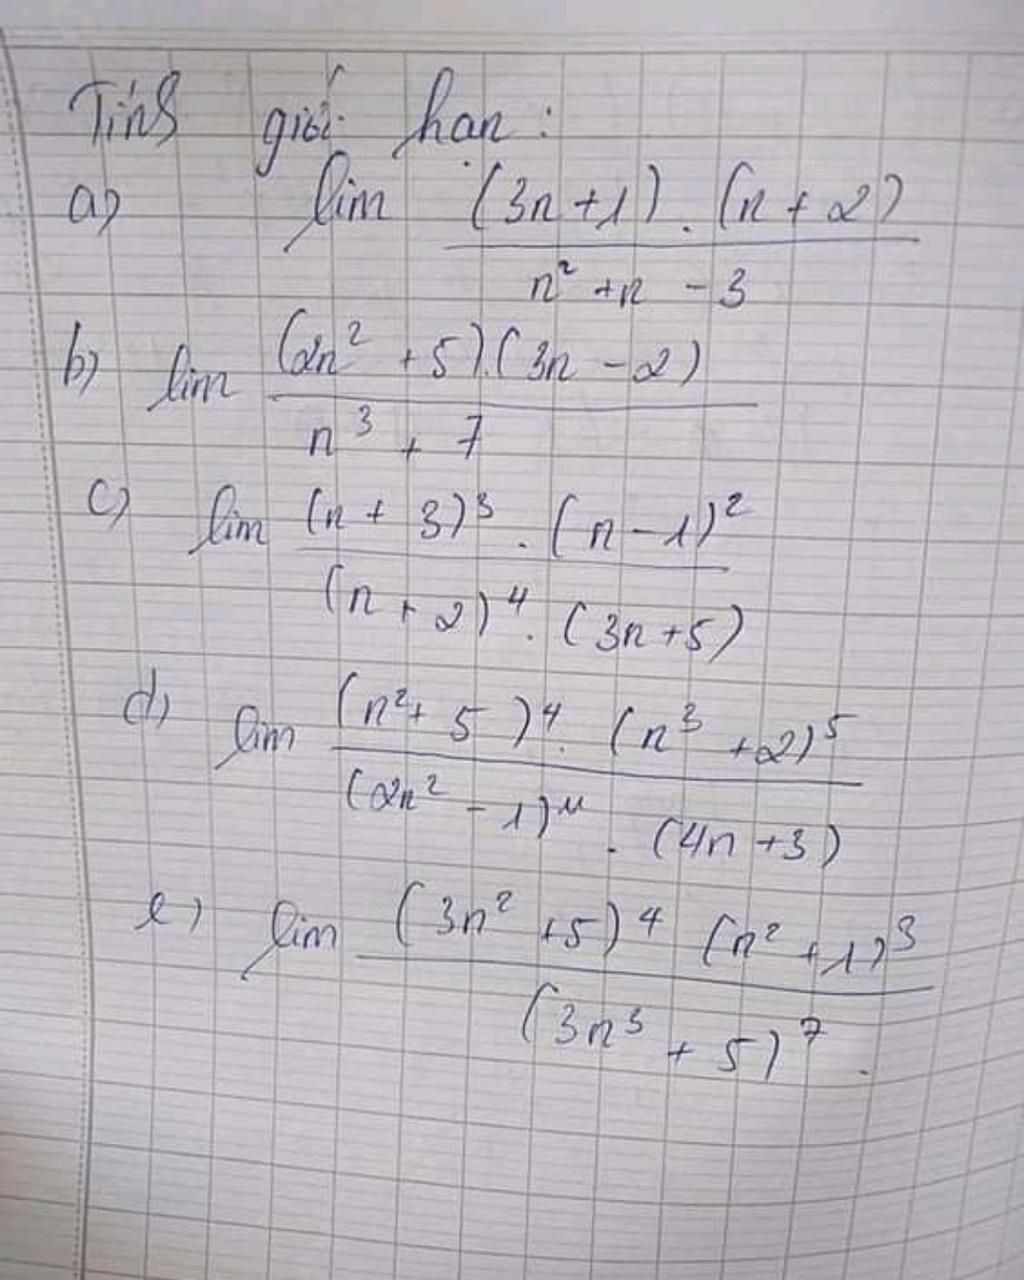 Tính giới hạn :
a) lim (3n+1).(n+2)
n² +n -3
b) lim (2n² +5).(3n -2)
n³ + 7
c) lim (n+ 3)³ . (n-1)²
(n+2)⁴ . (3n+5)
d) lim (n²+ 5 )⁴ . (n³ +2)⁵
(2n² -1)¹¹ . (4n+3)
e) lim (3n² +5)⁴ (n² +1)³
(3n³ + 5)⁷ .